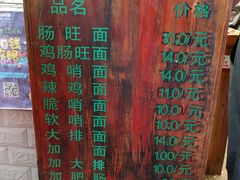 品名 价格
肠旺面 10.0/元
鸡肠旺面 14.0/元
鸡哨面 14.0/元
辣鸡面 11.0/元
脆哨面 10.0/元
软哨面 10.0/元
大排面 14.0/元
加面 1.00/元
加大排 10.0/元
加肥肠